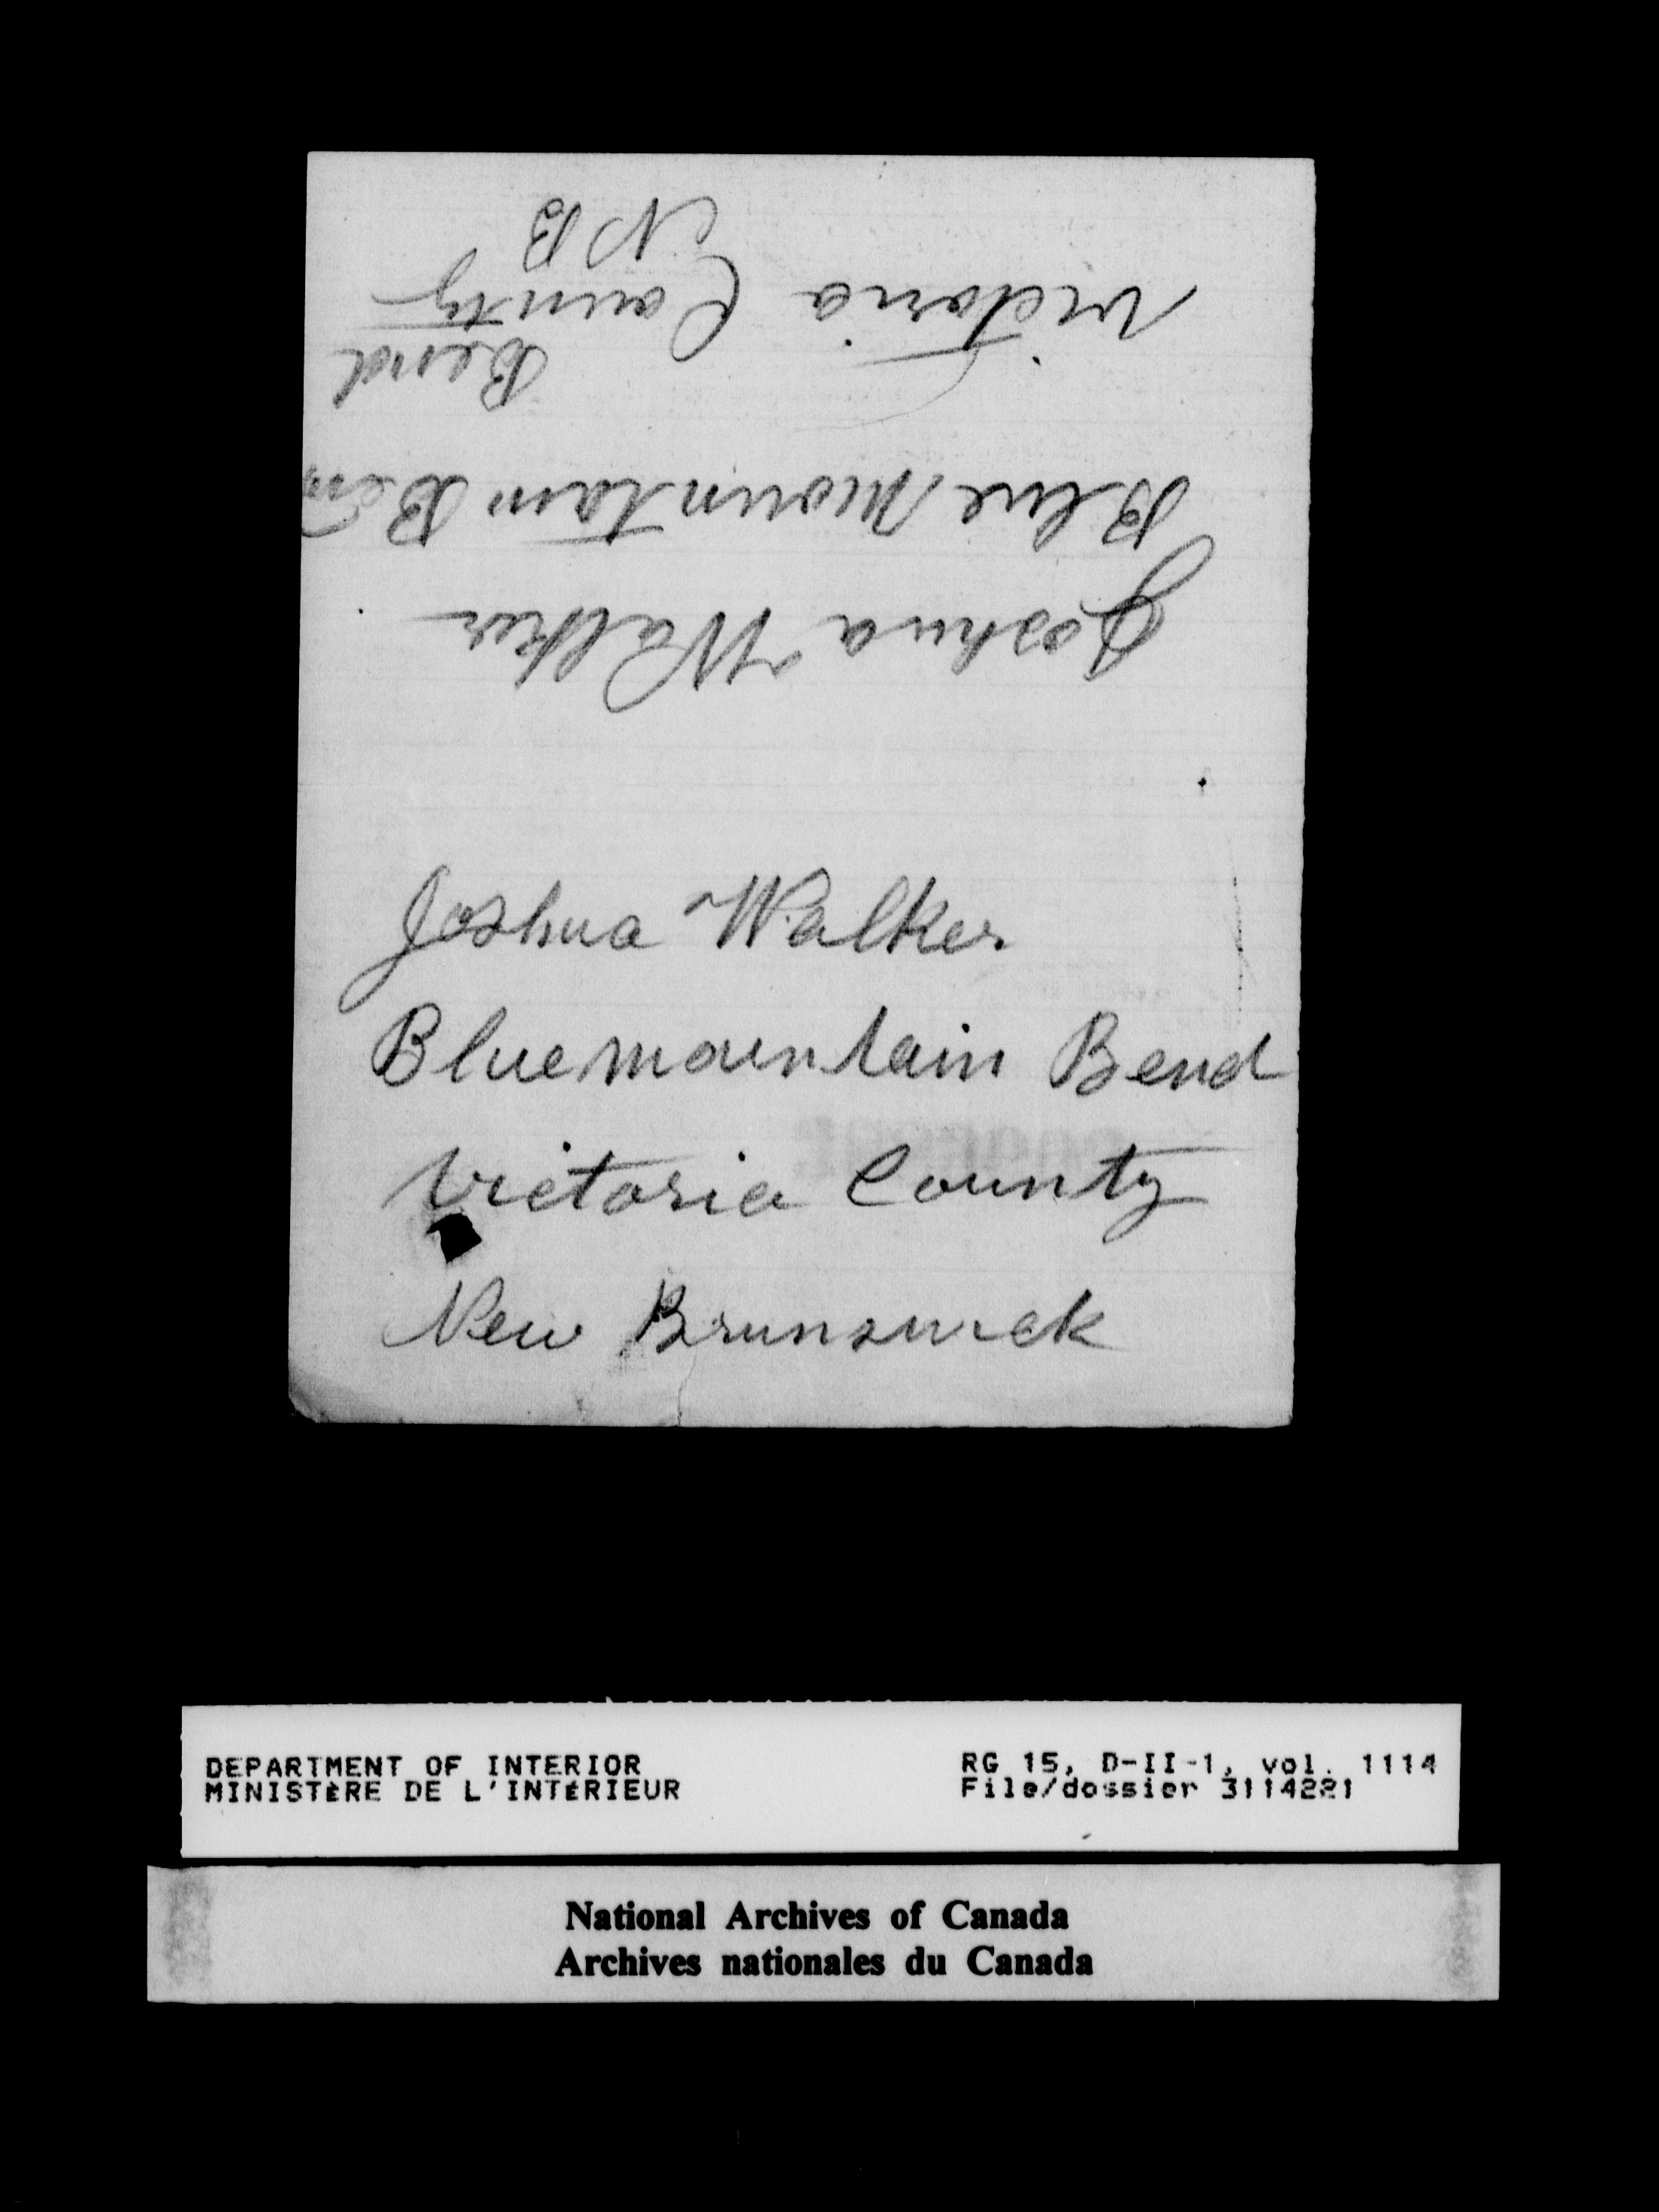 Joshua Walker
Blue Mountain Ben
Bend
Victoria County
N B
Joshua Walker
Bluemountain Bend
Victoria County
New Brunswick
DEPARTMENT OF INTERIOR
MINISTÈRE DE L'INTÉRIEUR
RG 15, D-II-1, vol. 1114
File/dossier 3114221
National Archives of Canada
Archives nationales du Canada